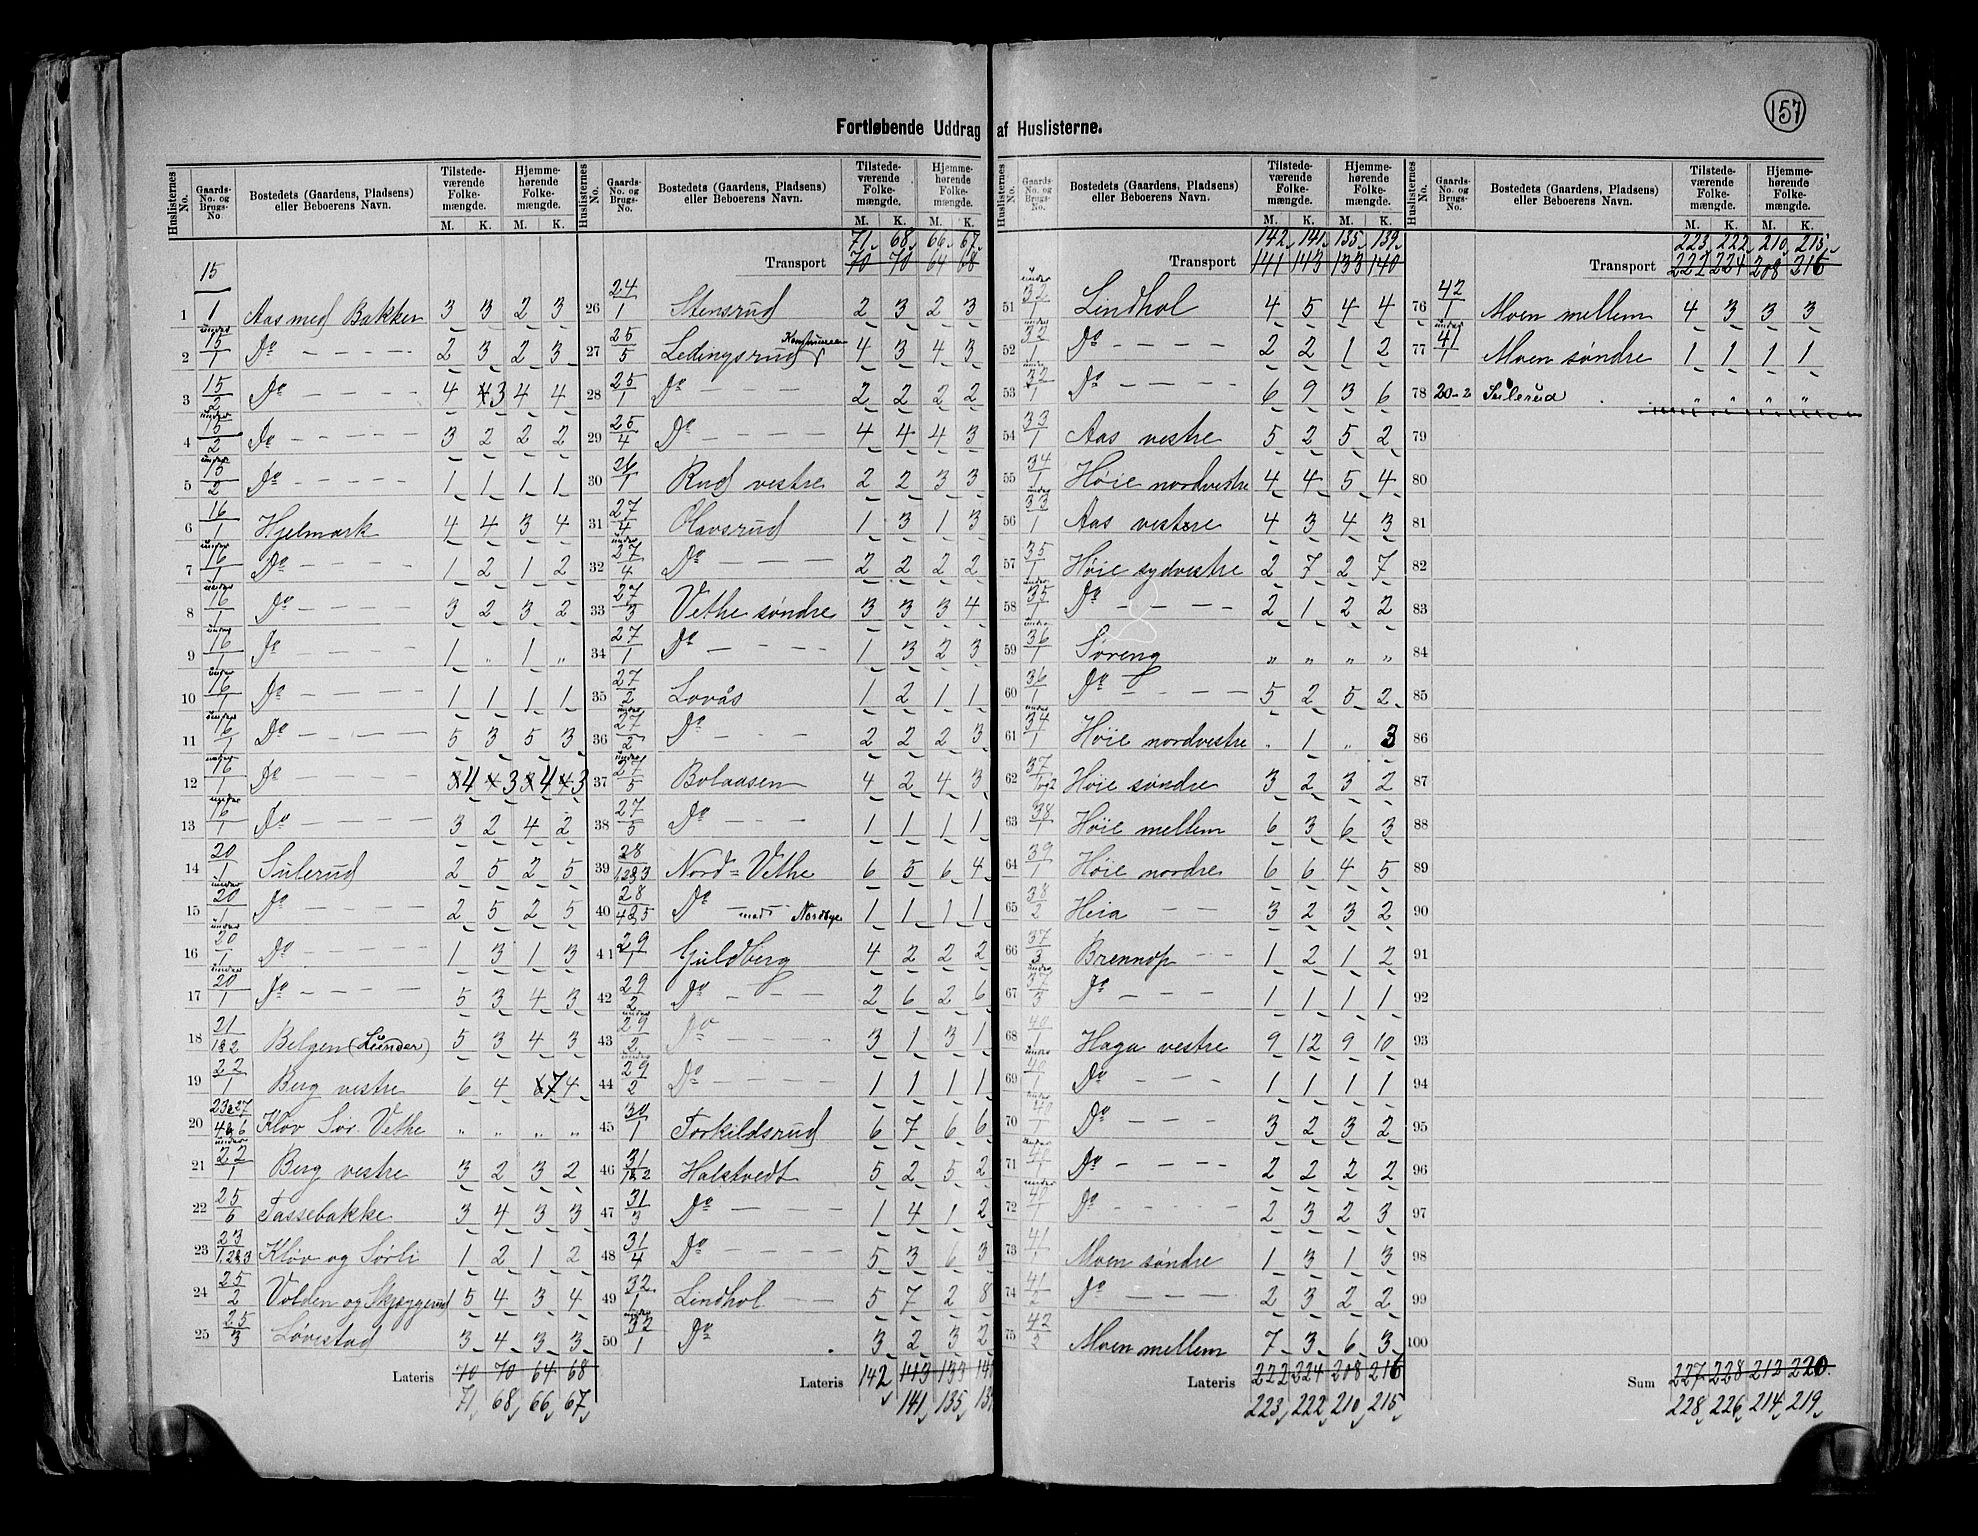 157
Fortløbende Uddrag af Huslisterne.
Huslisternes No. Gaards-No. og Brugs-No. Bostedets (Gaardens, Pladsens) eller Beboerens Navn. Tilstedeværende Folkemængde. M. K. Hjemmehørende Folkemængde. M. K.
1 15/1 Aas med Bakken 3 3 2 3
2 under 15/1 Do 2 3 2 3
3 15/2 Do 4 4 3 4 4
4 under 15/2 Do 3 2 2 2
5 under 15/2 Do 1 1 1 1
6 16/1 Hjelmark 4 4 3 4
7 under 16/1 Do 1 2 1 2
8 under 16/1 Do 3 2 3 2
9 under 16/1 Do 1 " 1 "
10 under 16/1 Do 1 1 1 1
11 under 16/1 Do 5 3 5 3
12 under 16/1 Do 4 3 4 3
13 under 16/1 Do 3 2 4 2
14 20/1 Sulerud 2 5 2 5
15 under 20/1 Do 2 5 2 5
16 under 20/1 Do 1 3 1 3
17 under 20/1 Do 5 3 4 3
18 21/1&2 Belgen (Lunder) 5 3 4 3
19 22/1 Berg vestre 6 4 7 4
20 23&27/4&6 Kløv Sør. Vethe " " " "
21 under 22/1 Berg vestre 3 2 3 2
22 25/6 Tassebakke 3 4 3 3
23 23/1,2&3 Kløv og Sørli 1 2 1 2
24 25/2 Volden og Skjæggerud 5 4 3 4
25 25/3 Løvestad 3 4 3 3
Lateris 70 70 64 68
71 68 66 67
Huslisternes No. Gaards-No. og Brugs-No. Bostedets (Gaardens, Pladsens) eller Beboerens Navn. Tilstedeværende Folkemængde. M. K. Hjemmehørende Folkemængde. M. K.
71 68 66 67
Transport 70 70 64 68
26 24/1 Stensrud 2 3 2 3
27 25/5 Ledingsrud 4 3 4 3
28 25/1 Do 2 2 2 2
29 25/4 Do 4 4 4 3
30 26/1 Rud vestre 2 2 3 3
31 27/4 Olavsrud 1 3 1 3
32 under 27/4 Do 2 2 2 2
33 27/3 Vethe søndre 3 3 3 4
34 27/1 Do 1 3 2 3
35 27/2 Lovås 1 2 1 1
36 under 27/2 Do 2 2 2 3
37 under 27/5 Bolaasen 4 2 4 3
38 27/5 Do 1 1 1 1
39 28/1,2&3 Nord=Vethe 6 5 6 4
40 28/4&5 Do med Nordbye 1 1 1 1
41 29/1 Guldberg 4 2 2 2
42 29/2 Do 2 6 2 6
43 under 29/2 Do 3 1 3 1
44 under 29/2 Do 1 1 1 1
45 30/1 Torkildsrud 6 7 6 6
46 31/1&2 Halstvedt 5 2 5 2
47 31/3 Do 1 4 1 2
48 31/4 Do 5 3 6 3
49 32/1 Lindhol 5 7 2 8
50 under 32/1 Do 3 2 3 2
Lateris 142 143 133 14
141 135 13
Huslisternes No. Gaards-No. og Brugs-No. Bostedets (Gaardens, Pladsens) eller Beboerens Navn. Tilstedeværende Folkemængde. M. K. Hjemmehørende Folkemængde. M. K.
142 141 135 139
Transport 141 143 133 140
51 under 32/1 Lindhol 4 5 4 4
52 under 32/1 Do 2 2 1 2
53 32/1 Do 6 9 3 6
54 33/1 Aas vestre 5 2 5 2
55 34/1 Høie nordvestre 4 4 5 4
56 under 33/1 Aas vestre 4 3 4 3
57 35/1 Høie sydvestre 2 7 2 7
58 under 35/1 Do 2 1 2 2
59 under 36/1 Søreng " " " "
60 36/1 Do 5 2 5 2
61 under 34/1 Høie nordvestre " 1 " 3
62 37/1og2 Høie søndre 3 2 3 2
63 38/1 Høie mellem 6 3 6 3
64 39/1 Høie nordre 6 6 4 5
65 38/2 Heia 3 2 3 2
66 37/3 Brennop 1 2 1 2
67 under 37/3 Do 1 1 1 1
68 40/1 Haga vestre 9 12 9 10
69 under 40/1 Do 1 1 1 1
70 40/1 Do 3 2 3 2
71 under 40/1 Do 2 2 2 2
72 under 40/1 Do 2 3 2 3
73 41/1 Moen søndre 1 3 1 3
74 41/2 Do 2 3 2 2
75 42/2 Moen mellem 7 3 6 3
Lateris 222 224 208 216
223 222 210 215
Huslisternes No. Gaards-No. og Brugs-No. Bostedets (Gaardens, Pladsens) eller Beboerens Navn. Tilstedeværende Folkemængde. M. K. Hjemmehørende Folkemængde. M. K.
223 222 210 215
Transport 222 224 208 216
76 42/1 Moen mellem 4 3 3 3
77 under 41/1 Moen søndre 1 1 1 1
78 20-2 Sulerud " " " "
79
80
81
82
83
84
85
86
87
88
89
90
91
92
93
94
95
96
97
98
99
100
Sum 227 228 212 220
228 226 214 219